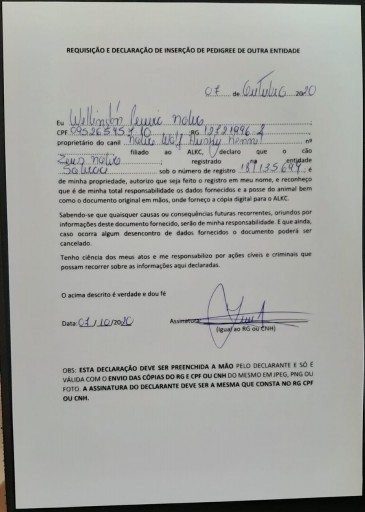 REQUISIÇÃO E DECLARAÇÃO DE INSERÇÃO DE PEDIGREE DE OUTRA ENTIDADE
07 de Outubro 2020
Eu Wellington
CPF RG
proprietário do canil Wolf Husky Kennel nº
filiado ao ALKC, declaro que o cão
Zeus registrado na entidade
Sobraci sob o número de registro é
de minha propriedade, autorizo que seja feito o registro em meu nome, e reconheço
que é de minha total responsabilidade os dados fornecidos e a posse do animal bem
como o documento original em mãos, onde forneço a cópia digital para o ALKC.
Sabendo-se que quaisquer causas ou consequências futuras recorrentes, oriundos por
informações deste documento fornecido, serão de minha responsabilidade. E que ainda,
caso ocorra algum desencontro de dados fornecidos o documento poderá ser
cancelado.
Tenho ciência dos meus atos e me responsabilizo por ações cíveis e criminais que
possam recorrer sobre as informações aqui declaradas.
O acima descrito é verdade e dou fé
Data 07/10/2020 Assinatura
(igual ao RG ou CNH)
OBS: ESTA DECLARAÇÃO DEVE SER PREENCHIDA A MÃO PELO DECLARANTE E SÓ É
VÁLIDA COM O ENVIO DAS CÓPIAS DO RG E CPF OU CNH DO MESMO EM JPEG, PNG OU
FOTO. A ASSINATURA DO DECLARANTE DEVE SER A MESMA QUE CONSTA NO RG CPF
OU CNH.